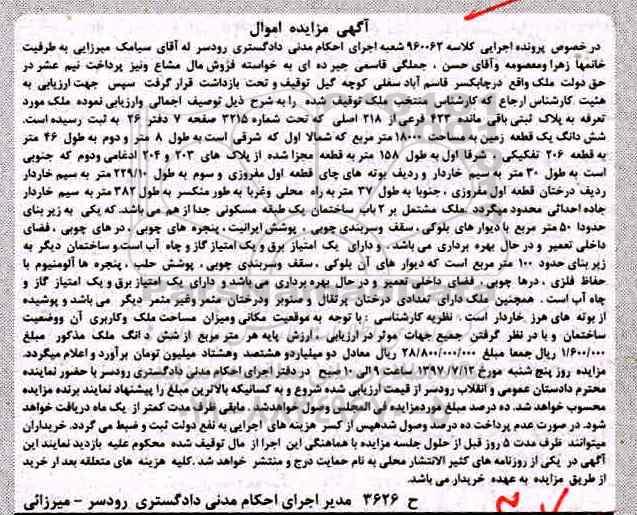 آگهی مزایده اموال
در خصوص پرونده اجرایی کلاسه ۹۶۰۰۶۲ شعبه اجرای احکام مدنی دادگستری رودسر له آقای سیامک میرزایی به طرفیت
خانمها زهرا ومعصومه وآقای حسن ، جملگی قاسمی جیر ده ای به خواسته فروش مال مشاع ونیز پرداخت نیم عشر در
حق دولت ملک واقع درچابکسر قاسم آباد سفلی کوچه گیل توقیف و تحت بازداشت قرار گرفت سپس جهت ارزیابی به
هئیت کارشناس ارجاع که کارشناس منتخب ملک توقیف شده را به شرح ذیل توصیف اجمالی وارزیابی نموده ملک مورد
تعرفه به پلاک ثبتی باقی مانده ۶۲۳ فرعی از ۲۱۸ اصلی که تحت شماره ۳۲۱۵ صفحه ۷ دفتر ۲۶ به ثبت رسیده است.
شش دانگ یک قطعه زمین به مساحت ۱۸۰۰۰ متر مربع که شمالا اول که شرقی است به طول ۸ متر و دوم به طول ۴۶ متر
به قطعه ۲۰۶ تفکیکی ، شرقا اول به طول ۱۵۸ متر به قطعه مجزا شده از پلاک های ۲۰۳ و ۲۰۴ ادغامی ودوم که جنوبی
است به طول ۳۰ متر به سیم خاردار و ردیف بوته های چای قطعه اول مفروزی و سوم به طول ۲۲۹/۱۰ متر به سیم خاردار
ردیف درختان قطعه اول مفروزی ، جنوبا به طول ۳۷ متر به راه محلی وغربا به طور منکسر به طول ۳۸۲ متر به سیم خاردار
جاده احداثی محدود میگردد .ملک مشتمل بر ۲ باب ساختمان یک طبقه مسکونی جدا از هم می باشد.که یکی به زیر بنای
حدودا ۵۰ متر مربع با دیوار های بلوکی ، سقف وسربندی چوبی ، پوشش ایرانیت ، پنجره های چوبی ، در های چوبی ، فضای
داخلی تعمیر و در حال بهره برداری می باشد. و دارای یک امتیاز برق و یک امتیاز گاز و چاه آب است.و ساختمان دیگر به
زیر بنای حدود ۱۰۰ متر مربع است که دیوار های آن بلوکی ، سقف وسربندی چوبی ، پوشش حلب ، پنجره ها آلومنیوم با
حفاظ فلزی ، درها چوبی ، فضای داخلی تعمیر و در حال بهره برداری می باشد و دارای یک امتیاز برق و یک امتیاز گاز و
چاه آب است . همچنین ملک دارای تعدادی درختان پرتقال و صنوبر ودرختان مثمر وغیر مثمر دیگر می باشد و پوشیده
از بوته های هرز .خاردار است . نظریه کارشناسی : با توجه به موقعیت مکانی ومیزان مساحت ملک وکاربری آن ووضعیت
ساختمان و با در نظر گرفتن جمیع جهات موثر در ارزیابی ، ارزش پایه هر متر مربع از شش دانگ ملک مذکور مبلغ
۱/۶۰۰/۰۰۰ ریال جمعا مبلغ ۲۸/۸۰۰/۰۰۰/۰۰۰ ریال معادل دو میلیاردو هشتصد وهشتاد میلیون تومان برآورد و اعلام میگردد.
مزایده روز پنج شنبه مورخ ۱۳۹۷/۷/۱۲ ساعت ۹ الی ۱۰ صبح در دفتر اجرای احکام مدنی دادگستری رودسر با حضور نماینده
محترم دادستان عمومی و انقلاب رودسر از قیمت ارزیابی شده شروع و به کسانیکه بالاترین مبلغ را پیشنهاد نمایند برنده مزایده
محسوب خواهد شد. ده درصد مبلغ موردمزایده فی المجلس وصول خواهدشد . مابقی ظرف مدت کمتر از یک ماه دریافت خواهد
شود. در صورت عدم پرداخت ده درصد وصول شدههپس از کسر هزینه های اجرایی به نفع دولت ثبت و ضبط می گردد. خریداران
میتوانند ظرف مدت ۵ روز قبل از حلول جلسه مزایده با هماهنگی این اجرا از مال توقیف شده محکوم علیه بازدید نمایند این
آگهی در یکی از روزنامه های کثیر الانتشار محلی به نام حمایت درج و منتشر خواهد شد .کلیه هزینه های متعلقه بعد از خرید
از طریق مزایده به عهده خریدار می باشد.
ح ۳۶۲۶ مدیر اجرای احکام مدنی دادگستری رودسر - میرزائی